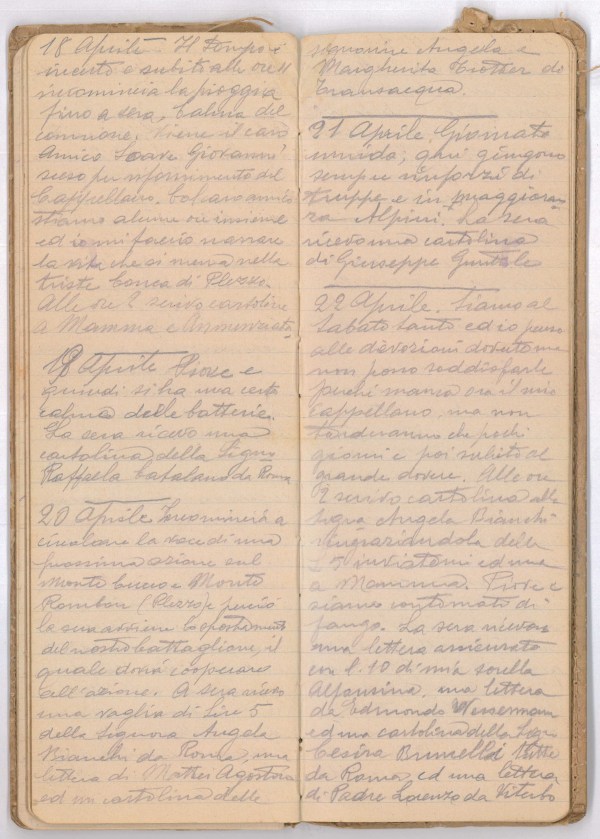 18 Aprile. Il tempo è
incerto e subito alle ore 11
ricomincia la pioggia
fino a sera, Calma del
comune, viene il caro
Amico Soave Giovanni
sceso per rifornimento del
Cappellaio. Col caro amico
stiamo alcune ore insieme
ed io mi faccio narrare
la vita che si mena nella
triste Conca di Plezzo.
Alle ore 2 scrivo cartoline
a Mamma e Annunziata
19 Aprile Piove e
quindi si ha una certa
calma delle batterie.
La sera ricevo una
cartolina della Sigra
Raffaela Catalano da Roma
20 Aprile Incomincia a
circolare la voce di una
prossima azione sul
Monte Cuccio e Monte
Rombon (Plezzo) e perciò
la
del nostro battaglione, il
quale dovrà cooperare
all'azione. A sera ricevo
una vaglia di Lire 5
della Signora Angela
Bianchi da Roma, una
lettera di Mattei Agostina
ed un cartolina delle
signorine Angela e
Margherita Trotter da
Transacqua.
21 Aprile. Giornata
umida, qui giungono
sempre rinforzi di
truppe e in maggioran
za Alpini. La sera
ricevo una cartolina
di Giuseppe
22 Aprile. Siamo al
Sabato Santo ed io penso
alle devozioni dovute ma
non posso soddisfarle
perchè manca ora il mio
Cappellano, ma non
tarderanno che pochi
giorni e poi subito al
grande dovere. Alle ore
2 scrivo cartolina alla
Sigra Angela Bianchi
ringraziandola delle
£5 inviatemi ed una
a Mamma. Piove e
siamo contornati di
fango. La sera ricevo
una lettera assicurata
con l. 10 di mia sorella
Alfonsina, una lettera
da Edmondo Wessermann
ed una cartolina della Sigra
Cesira Brunelli tutte
da Roma ed una lettera
di Padre Lorenzo da Viterbo